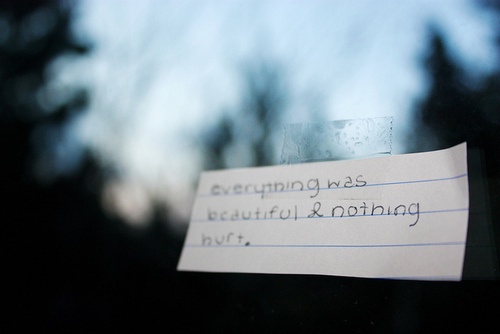 everything was
beautiful & nothing
hurt.